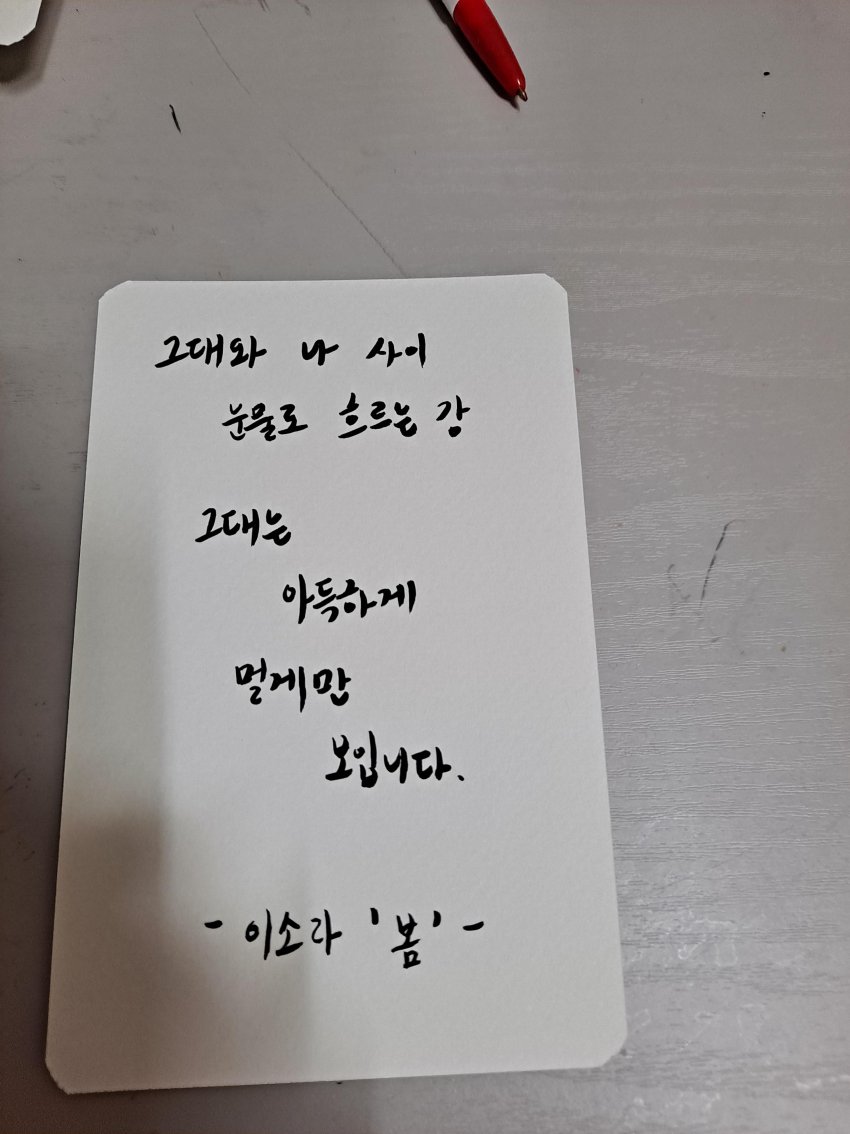 그대와 나 사이
눈물로 흐르는 강
그대는
아득하게
멀게만
보입니다.
- 이소라 '봄' -